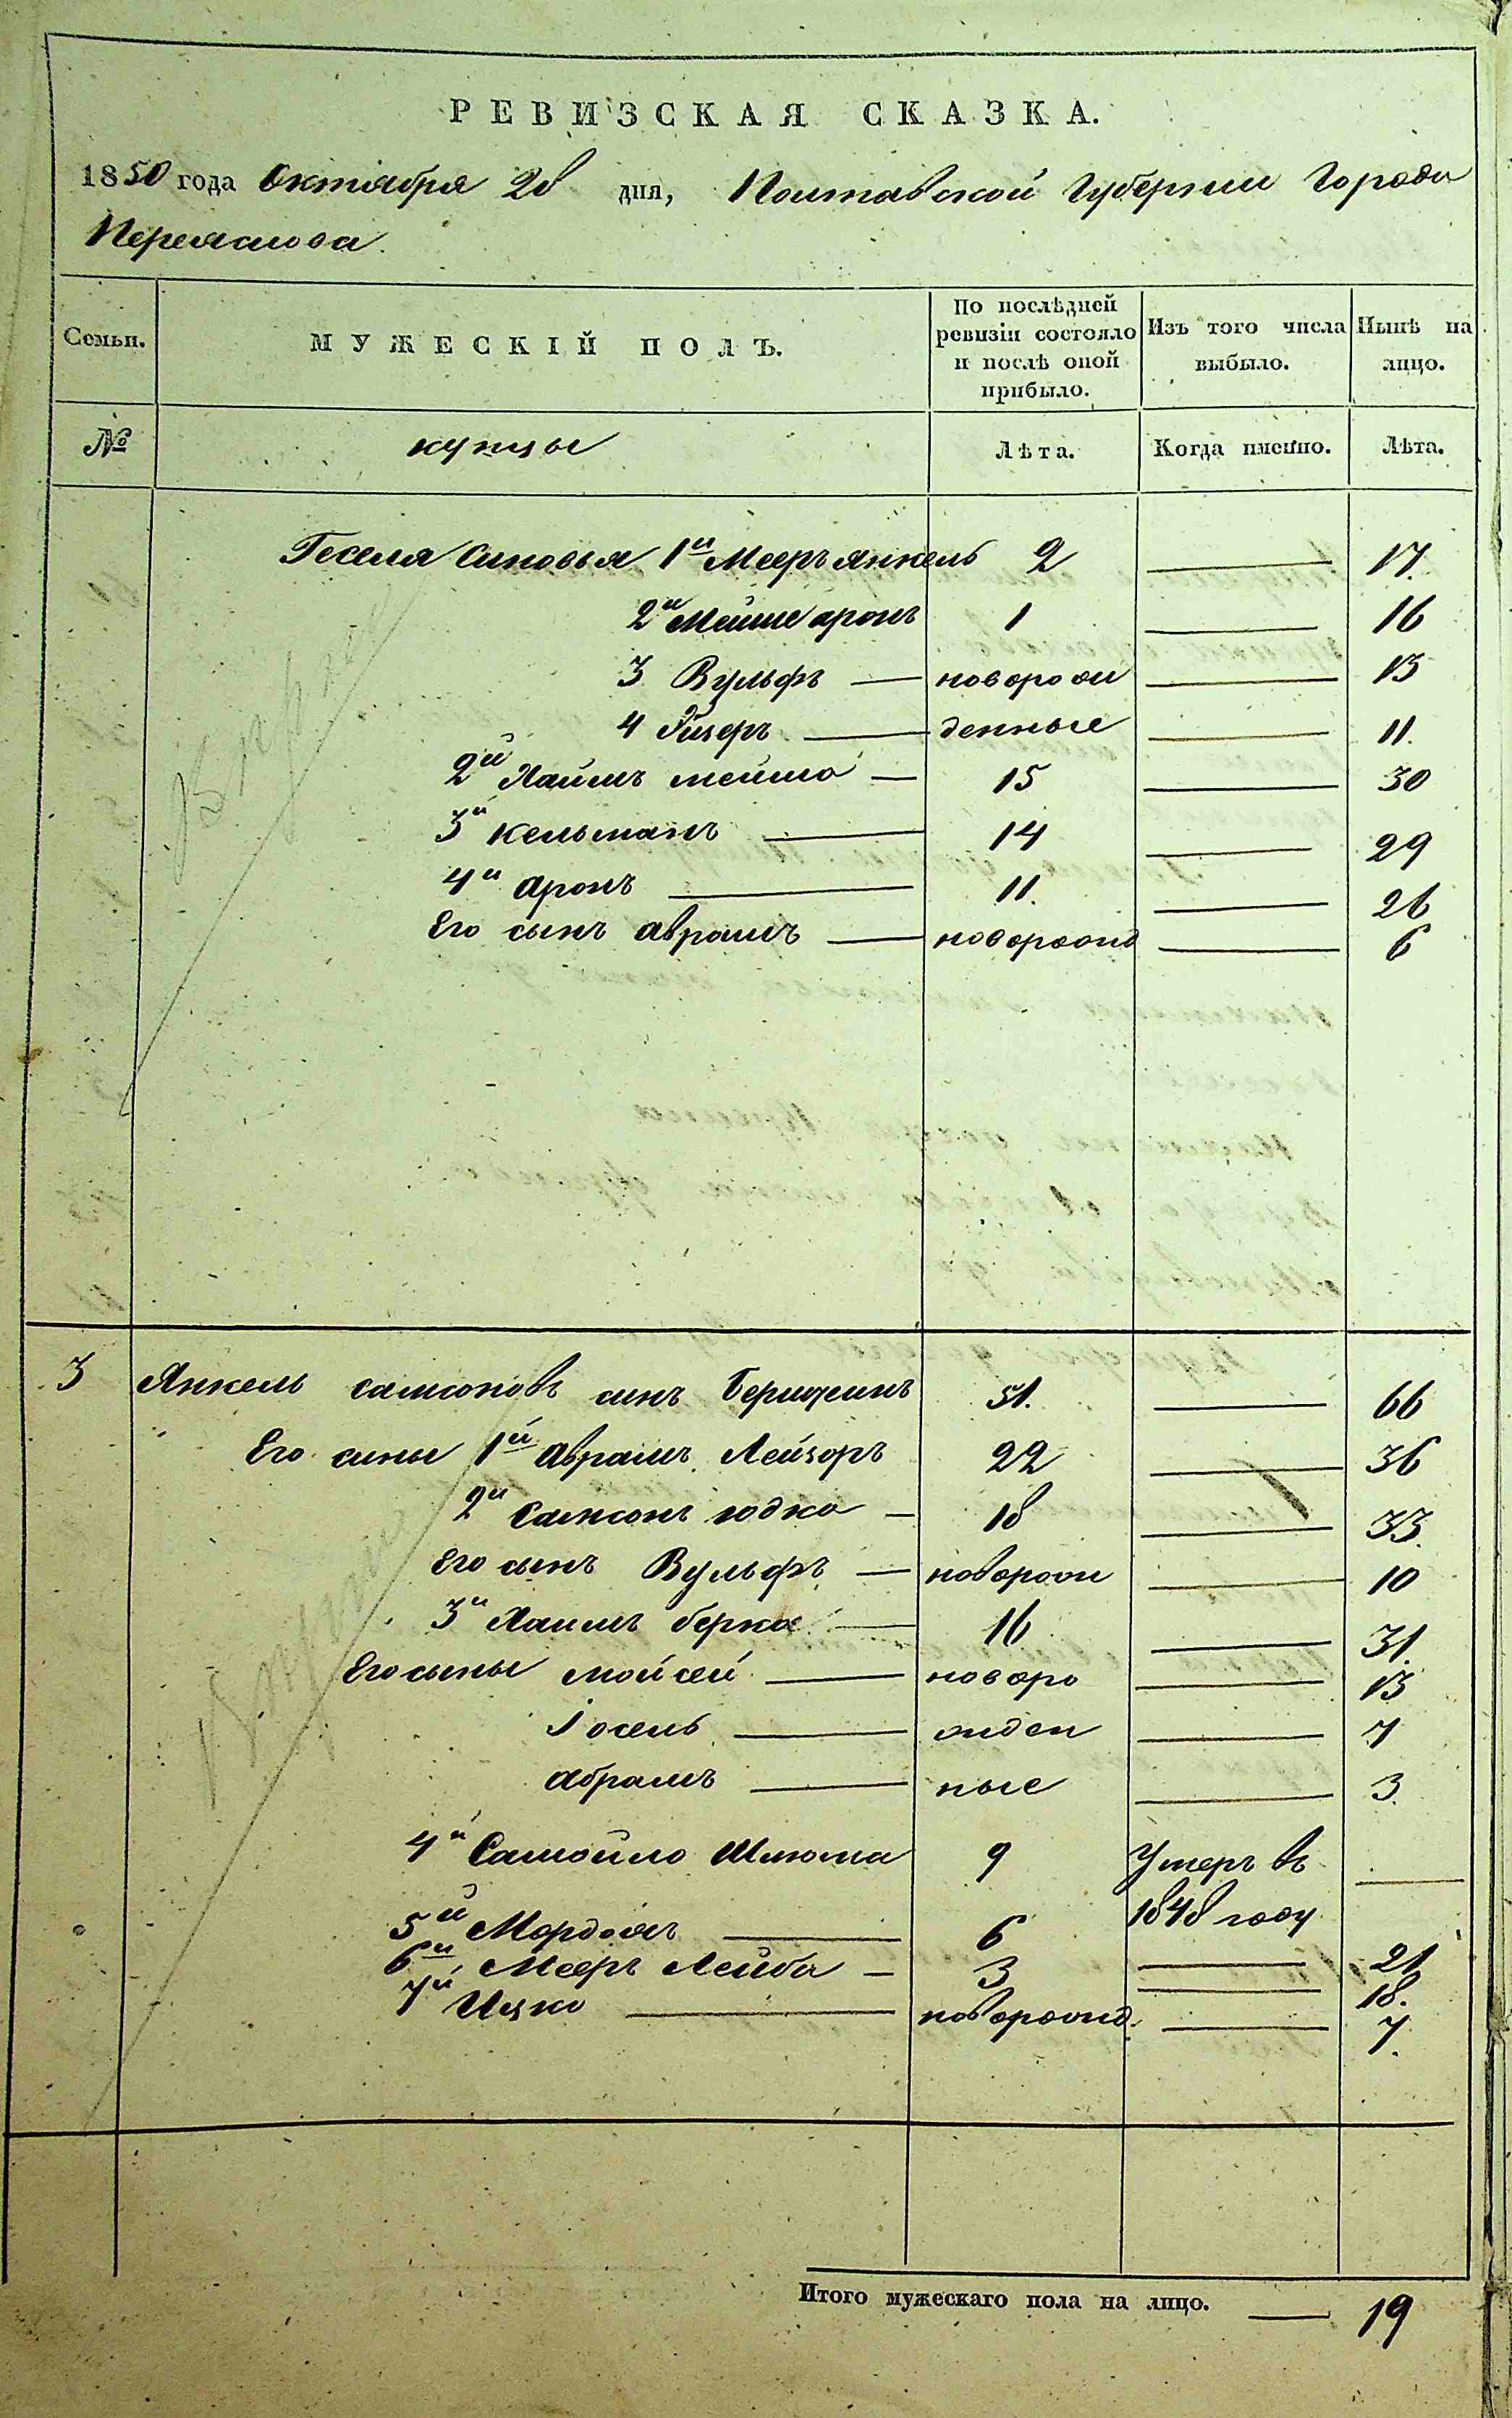 РЕВИЗСКАЯ СКАЗКА.
1850 года Октября 28 дня, Полтавской Губернии Города
Переяслова.
Семьи. МУЖЕСКІЙ ПОЛЪ. По послѣдней ревизіи состояло и послѣ оной прибыло. Изъ того числа выбыло. Нынѣ на лицо.
№ купцы Лѣта. Когда именно. Лѣта.
Геселя Синовья 1й Мееръ Янкель 2 — 17.
2й Мойше аронъ 1 — 16
3 Вульфъ — новорож — 13
4 — денные — 11.
2й Хаимъ мойша — 15 — 30
3й Кельманъ — 14 — 29
4й Аронъ — 11. — 26
Его сынъ Аврамъ — новорожд — 6
3 Янкель самсоновъ синъ 51. — 66
Его сины 1й Аврамъ Лейзоръ 22 — 36
2й Самсонъ юдко — 18 — 33.
Его сынъ Вульфъ — новорож — 10
3й Хаимъ берка — 16 — 31.
Его сыны мойсей — новоро — 13
Іосель — жден — 7
Абрамъ — ные — 3.
4й Самойло Шлюма 9 Умеръ въ —
1848 году
5й Мордохъ — 6 — 21
6й Мееръ Лейба — 3 — 18.
7й Ицко — новорожд. — 7.
Итого мужескаго пола на лицо. — 19